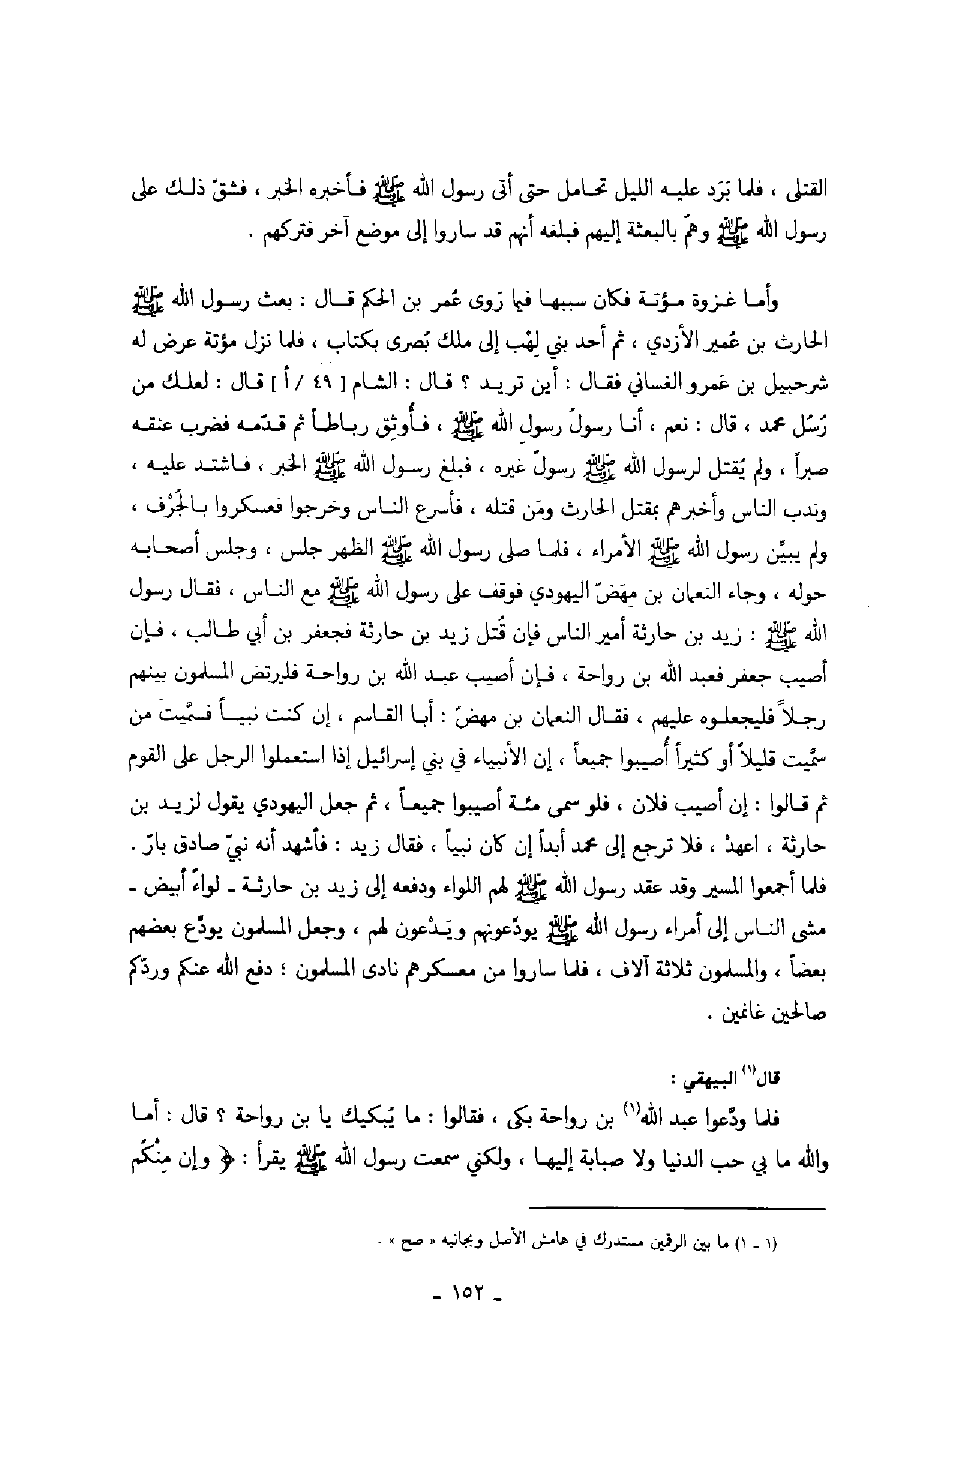 القتلى ، فلما بَرَد عليه الليل تحامل حتى أتى رسول الله ﷺ فأخبره الخبر ، فشقّ ذلك على
رسول الله ﷺ وهمّ بالبعثة إليهم فبلغه أنهم قد ساروا إلى موضع آخر فتركهم .
وأما غزوة مؤتة فكان سببها فيما رَوى عُمر بن الحكم قال : بعث رسول الله ﷺ
الحارث بن عُمير الأزدي ، ثم أحد بني لِهْب إلى ملك بُصرى بكتاب ، فلما نزل مؤتة عرض له
شرحبيل بن عَمرو الغساني فقال : أين تريد ؟ قال : الشام [ ٤٩ / أ ] قال : لعلك من
رُسُل محمد ، قال : نعم ، أنا رسولُ رسولِ الله ﷺ ، فأُوثِق رباطاً ثم قدّمه فضرب عنقه
صبراً ، ولم يُقتل لرسول الله ﷺ رسولٌ غيره ، فبلغ رسول الله ﷺ الخبر ، فاشتد عليه ،
وندب الناس وأخبرهم بمقتل الحارث ومَن قتله ، فأسرع الناس وخرجوا فعسكروا بالجُرْف ،
ولم يبيَّن رسول الله ﷺ الأمراء ، فلما صلى رسول الله ﷺ الظهر جلس ، وجلس أصحابه
حوله ، وجاء النعمان بن مهَضّ اليهودي فوقف على رسول الله ﷺ مع الناس ، فقال رسول
الله ﷺ : زيد بن حارثة أمير الناس فإن قُتل زيد بن حارثة فجعفر بن أبي طالب ، فإن
أصيب جعفر فعبد الله بن رواحة ، فإن أصيب عبد الله بن رواحة فليرتض المسلمون بينهم
رجلاً فليجعلوه عليهم ، فقال النعمان بن مهضّ : أبا القاسم ، إن كنت نبياً فسَمَّيتَ من
سمَّيت قليلاً أو كثيراً أُصيبوا جميعاً ، إن الأنبياء في بني إسرائيل إذا استعملوا الرجل على القوم
ثم قالوا : إن أصيب فلان ، فلو سمى مئة أصيبوا جميعاً ، ثم جعل اليهودي يقول لزيد بن
حارثة ، اعهدْ ، فلا ترجع إلى محمد أبداً إن كان نبياً ، فقال زيد : فأشهد أنه نبيّ صادق بارّ .
فلما أجمعوا المسير وقد عقد رسول الله ﷺ لهم اللواء ودفعه إلى زيد بن حارثة ـ لواءً أبيض ـ
مشى الناس إلى أمراء رسول الله ﷺ يودّعونهم ويَدْعون لهم ، وجعل المسلمون يودّع بعضهم
بعضاً ، والمسلمون ثلاثة آلاف ، فلما ساروا من معسكرهم نادى المسلمون ؛ دفع الله عنكم وردّكم
صالحين غانمين .
قال(١) البيهقي :
فلما ودَّعوا عبد الله(١) بن رواحة بكى ، فقالوا : ما يُبكيك يا بن رواحة ؟ قال : أما
والله ما بي حب الدنيا ولا صبابة إليها ، ولكني سمعت رسول الله ﷺ يقرأ : ﴿ وإن مِنْكُم
(١ ـ ١) ما بين الرقمين مستدرك في هامش الأصل وبجانبه « صح » .
ـ ١٥٢ ـ